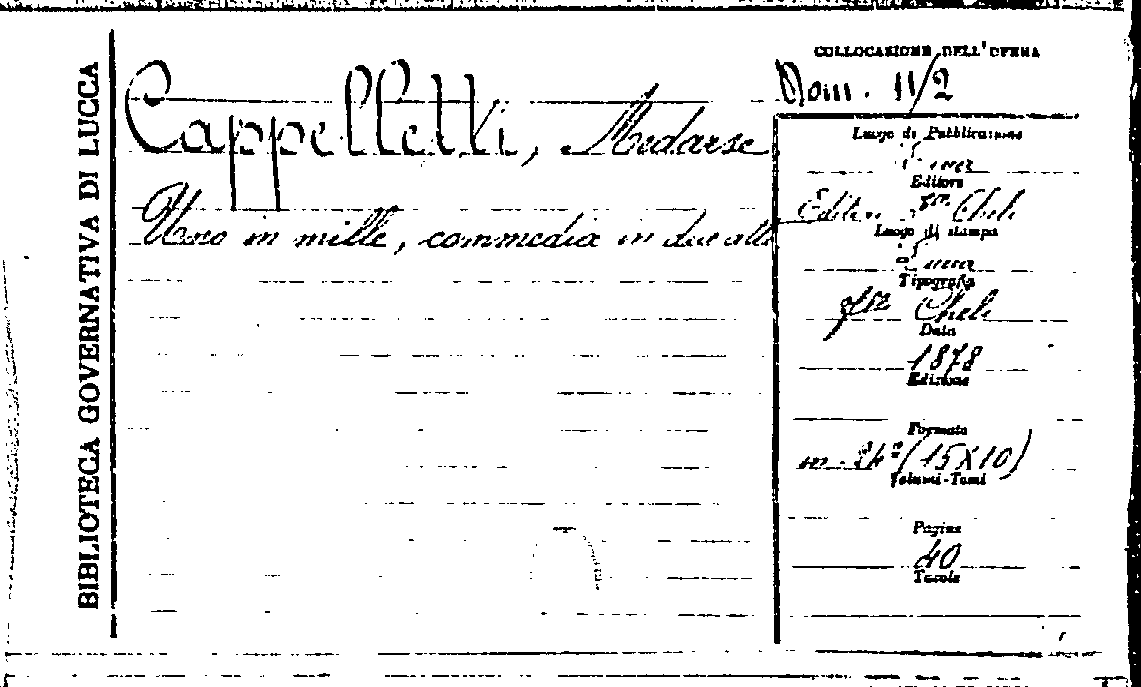 BIBLIOTECA GOVERNATIVA DI LUCCA
Cappelletti, Medarse
Uno in mille, commedia in due atti
COLLOCAZIONE DELL'OPERA
Dom. 11/2
Luogo di Pubblicazione
Editore
Edit. Cheli
Luogo di stampa
Tipografia
Cheli
Data
1878
Edizione
Formato
in-24º (15X10)
Volumi-Tomi
Pagine
40
Tavole